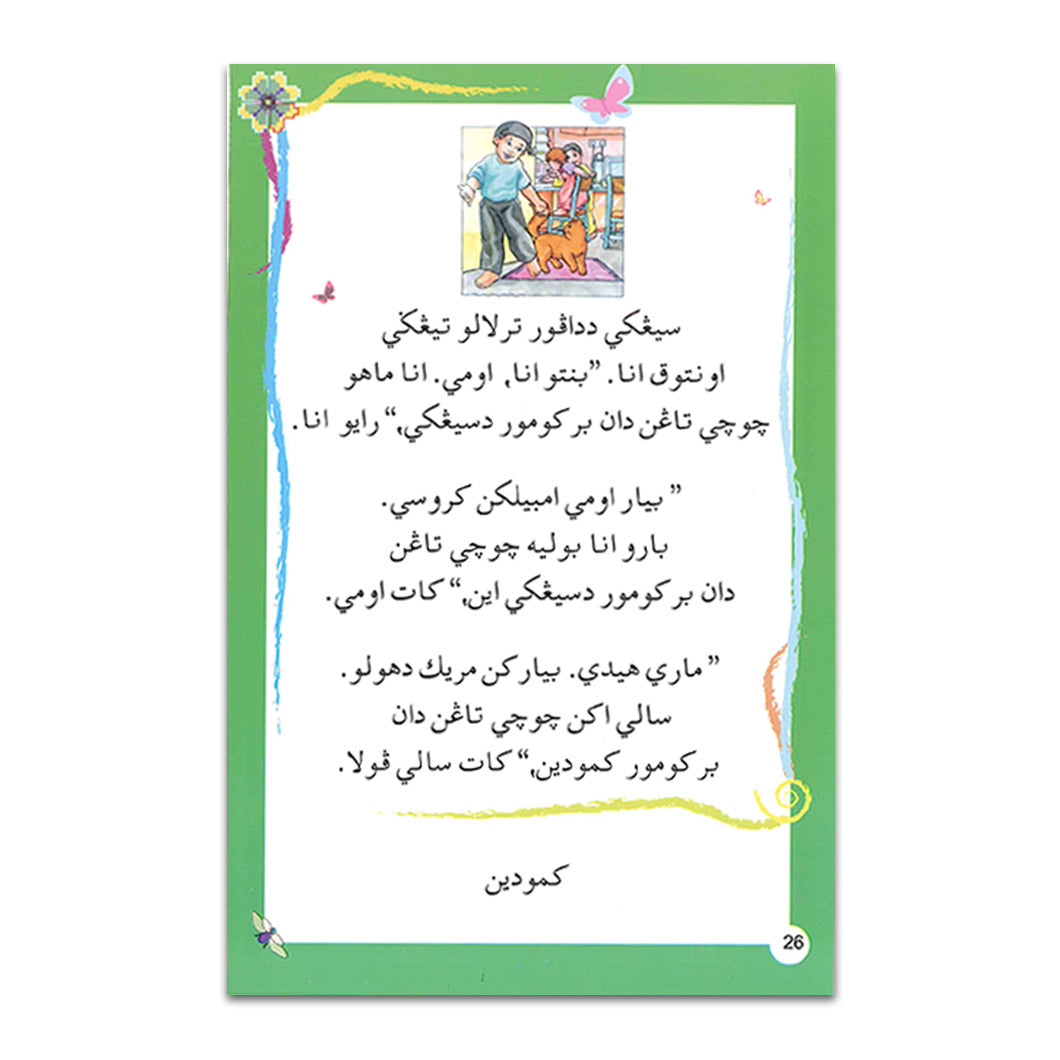 سيڠکي دداڤور ترلالو تيڠݢي
اونتوق انا. ”بنتو انا, اومي. انا ماهو
چوچي تاڠن دان برکومور دسيڠکي,“ رايو انا.
” بيار اومي امبيلکن کروسي.
بارو انا بوليه چوچي تاڠن
دان برکومور دسيڠکي اين,“ کات اومي.
” ماري هيدي. بيارکن مريك دهولو.
سالي اکن چوچي تاڠن دان
برکومور کمودين,“ کات سالي ڤولا.
کمودين
26